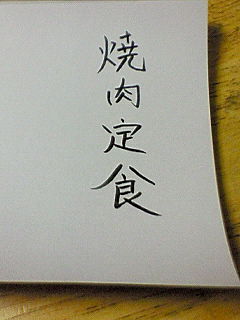 焼肉定食